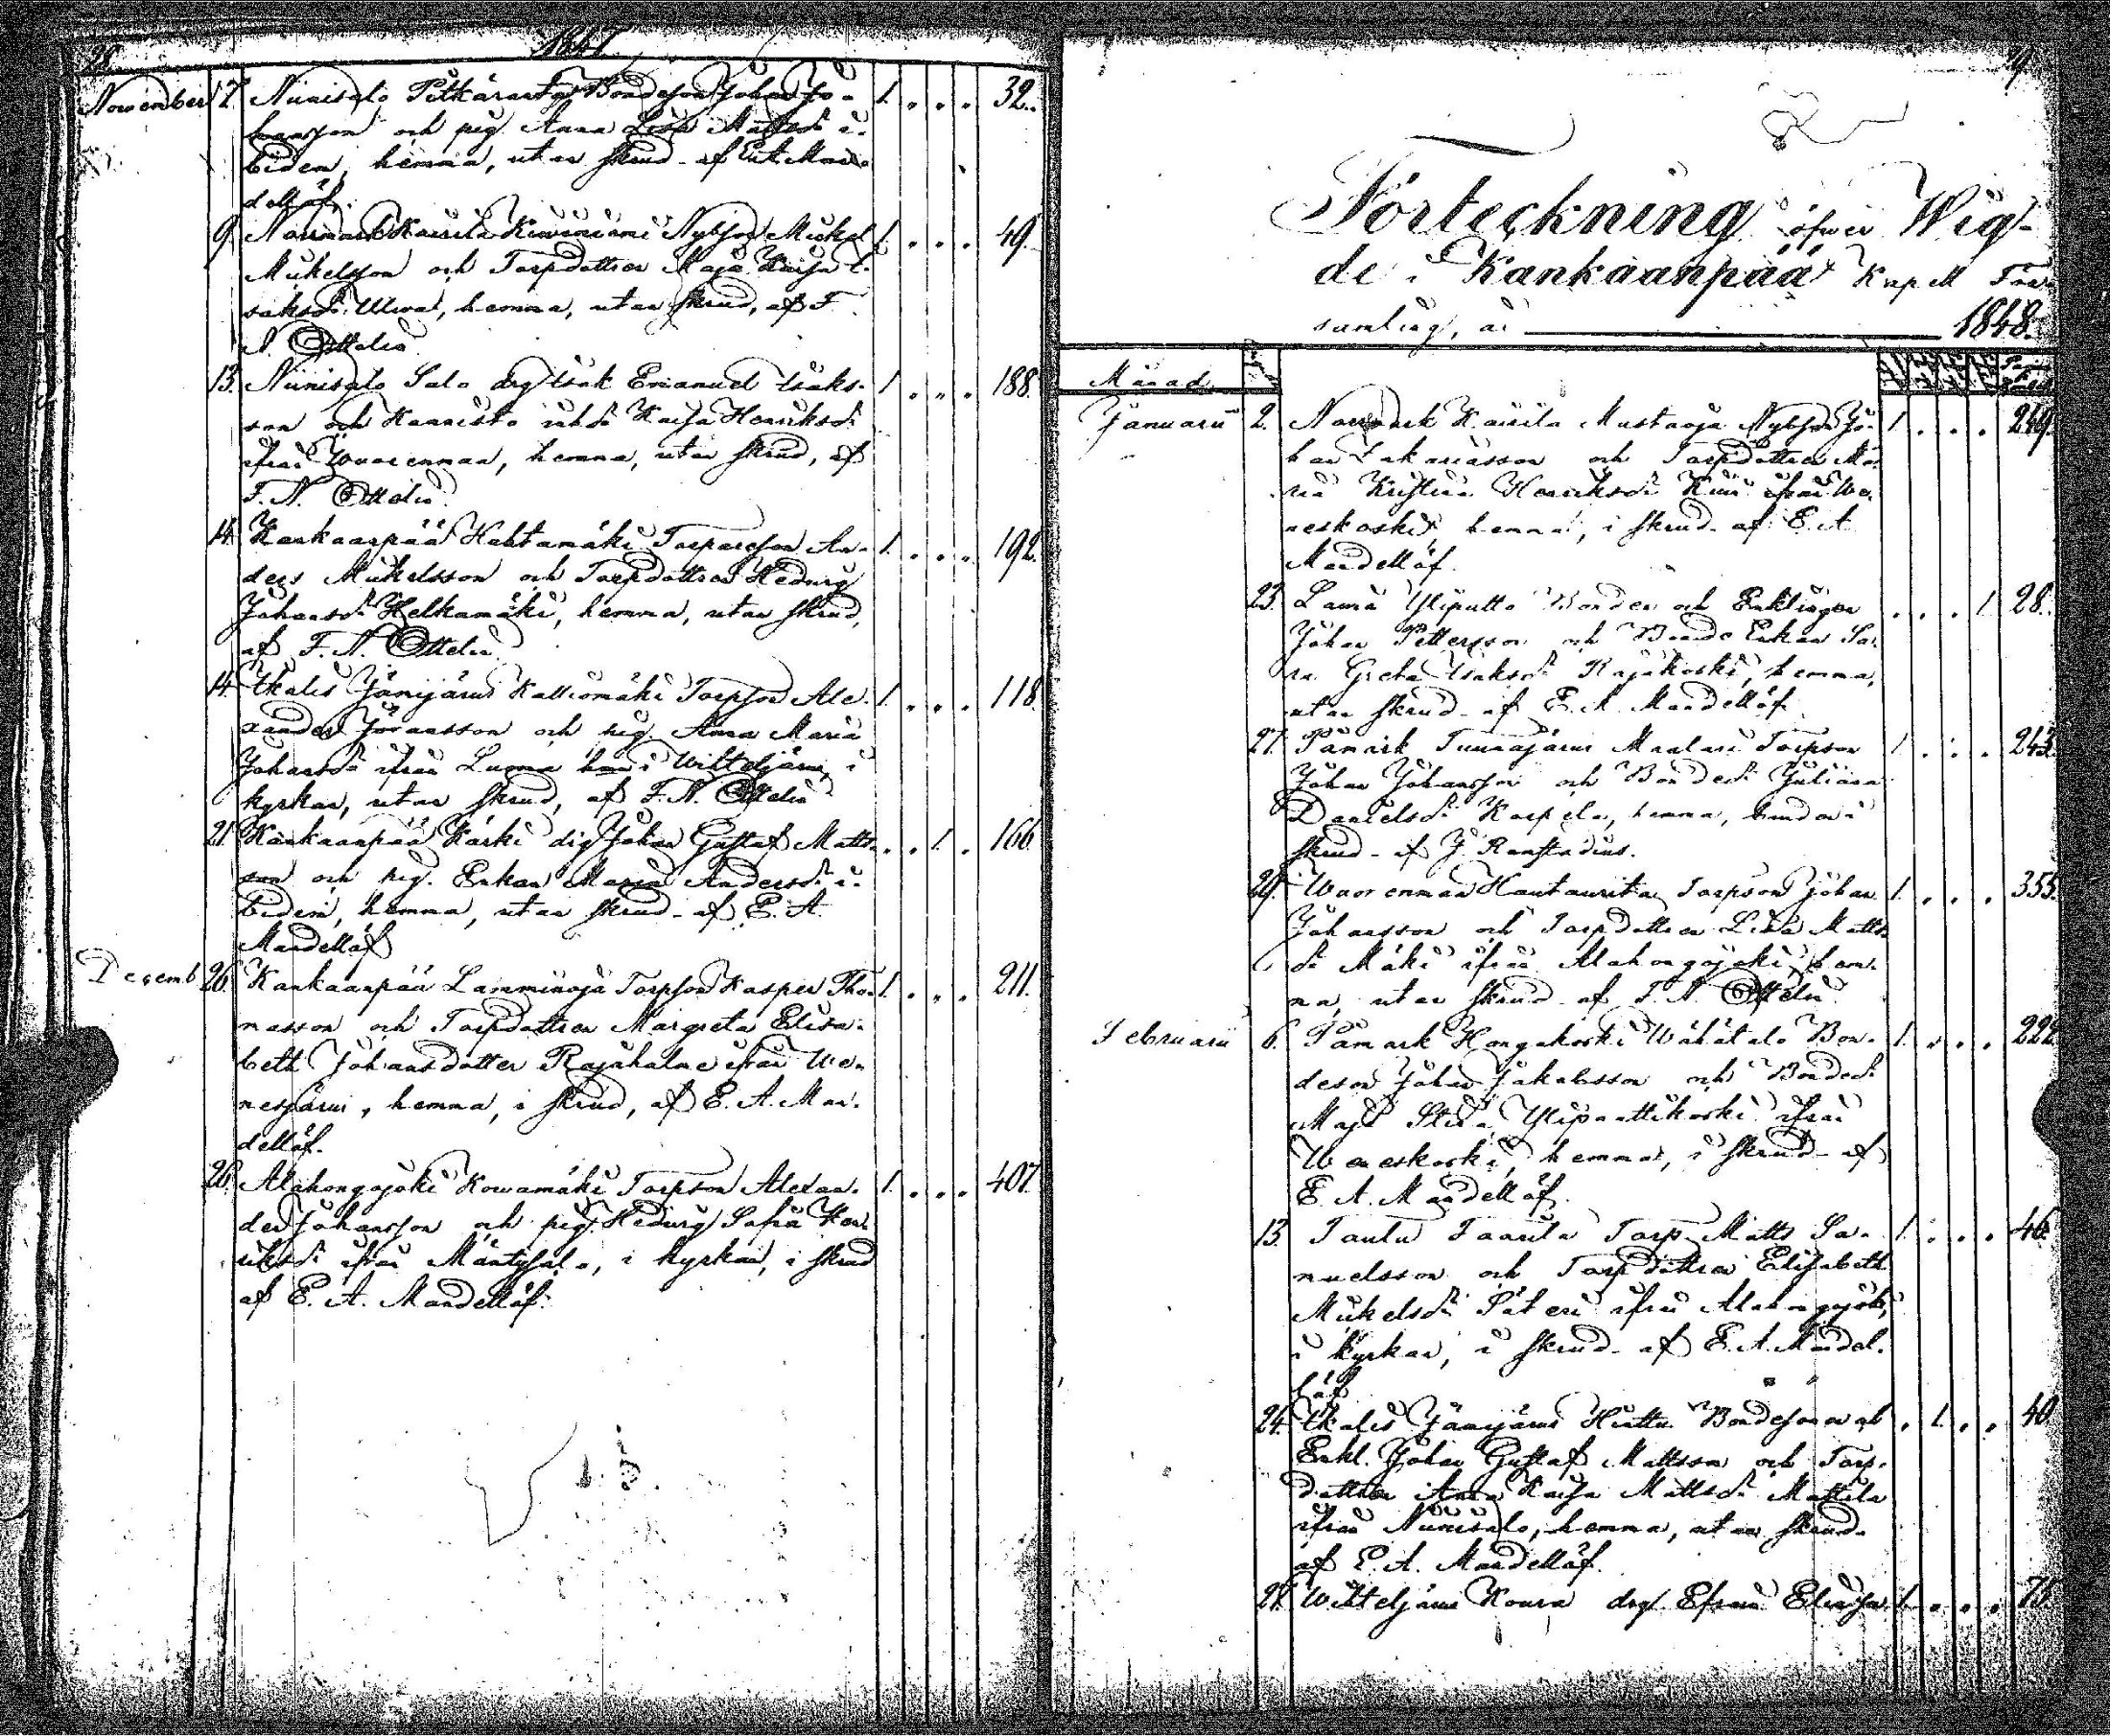 28.
1847.
November 7. Niinisalo Pitkäranta Bondeson Johan Jo- 1. 32.
hansson och pig. Anna Lisa Mattsdr i-
bidem, hemma, utan skrud af E. A. Man-
dellöf.
9. Norrmark Kairila Kiviniemi Nybson Mickel 1. 49
Mickelsson och Torpdottren Maja Kaisa I-
saksdr Ulvas, hemma, utan skrud, af F.
N. Ottelin
13. Niinisalo Salo drg Isak Emanuel Isaks- 1. 188.
son och Kannisto inhdr Kaisa Henriksdr
ifrån Wuorenmaa, hemma, utan skrud, af
F. N. Ottelin.
14. Kankaanpää Hahtamäki Torpareson An- 1. 192.
ders Mickelsson och Torpdottren Hedvig
Johansdr Helkamäki, hemma, utan skrud,
af F. N. Ottelin.
14. Ikalis Jämijärvi Kalliomäki Torpson Ale- 1. 118.
xander Jöransson och pig. Anna Maria
Johansdr ifrån Luoma hem i Wihteljärvi, i
kyrkan, utan skrud, af F. N. Ottelin
21. Kankaanpää Karki drg Johan Gustaf Matts- 1. 166.
son och pig. Enkan Maria Andersdr i-
bidem, hemma, utan skrud af E. A.
Mandellöf
Decemb. 26. Kankaanpää Lamminoja Torpson Kasper Tho- 1. 211.
masson och Torpdottren Margreta Elisa-
beth Johansdotter Rajahalme ifrån We-
nesjärvi, hemma, i skrud, af E. A. Man-
dellöf.
26. Alahongojoki Kowamäki Torpson Alexan- 1. 407.
der Johansson och pig. Hedvig Sofia Hen-
riksdr ifrån Mäntysalo, i kyrkan, i skrud
af E. A. Mandellöf.
29.
Förteckning öfwer Wig-
de i Kankaanpää Kapell För-
samling, år 1848.
Månad
Januarii 2. Norrmark Kairila Mustaoja Nybson Jo- 1. 249.
han Zakariasson och Torpdottren Ma-
ria Kristina Henriksdr Kuu ifrån We-
neskoski, hemma, i skrud af E. A.
Mandellöf.
23. Lavia Yliputto Bonden och Enklingen 1. 28.
Johan Pettersson och Bonde Enkan Sa-
ra Greta Isaksdr Rajakoski, hemma,
utan skrud af E. A. Mandellöf
27. Påmark Tuurajärvi Maalari Torpson 1. 243.
Johan Johansson och Bondedr Juliana
Danielsdr Karpela, hemma, i
skrud af J. Ranstadius.
29. Wuorenmaa Hautaurita Torpson Johan 1. 355.
Johansson och Torpdottren Lisa Matts-
dr Mäki ifrån Alahongojoki, hem-
ma, utan skrud af F. N. Ottelin
Februarii 6. Påmark Hongakoski Wähätalo Bon- 1. 222.
deson Johan Jakobsson och Bondedr
Maja Stina Ylipaattikoski ifrån
Weneskoski, hemma, i skrud af
E. A. Mandellöf.
13. Taulu Torp. Matts Sa- 1. 46.
muelsson och Torpdottren Elisabeth
Mickelsdr Säteri ifrån Alahongojoki,
i kyrkan, i skrud af E. A. Mandel-
löf
24. Ikalis Jämijärvi Hiettu Bondesonen och 1. 40.
Enkl. Johan Gustaf Mattsson och Torp-
dottren Anna Kaisa Mattsdr Mattila
ifrån Niinisalo, hemma, utan skrud
af E. A. Mandellöf.
27. Wihteljärvi Koura drg. Efraim Eliasson 1. 75.